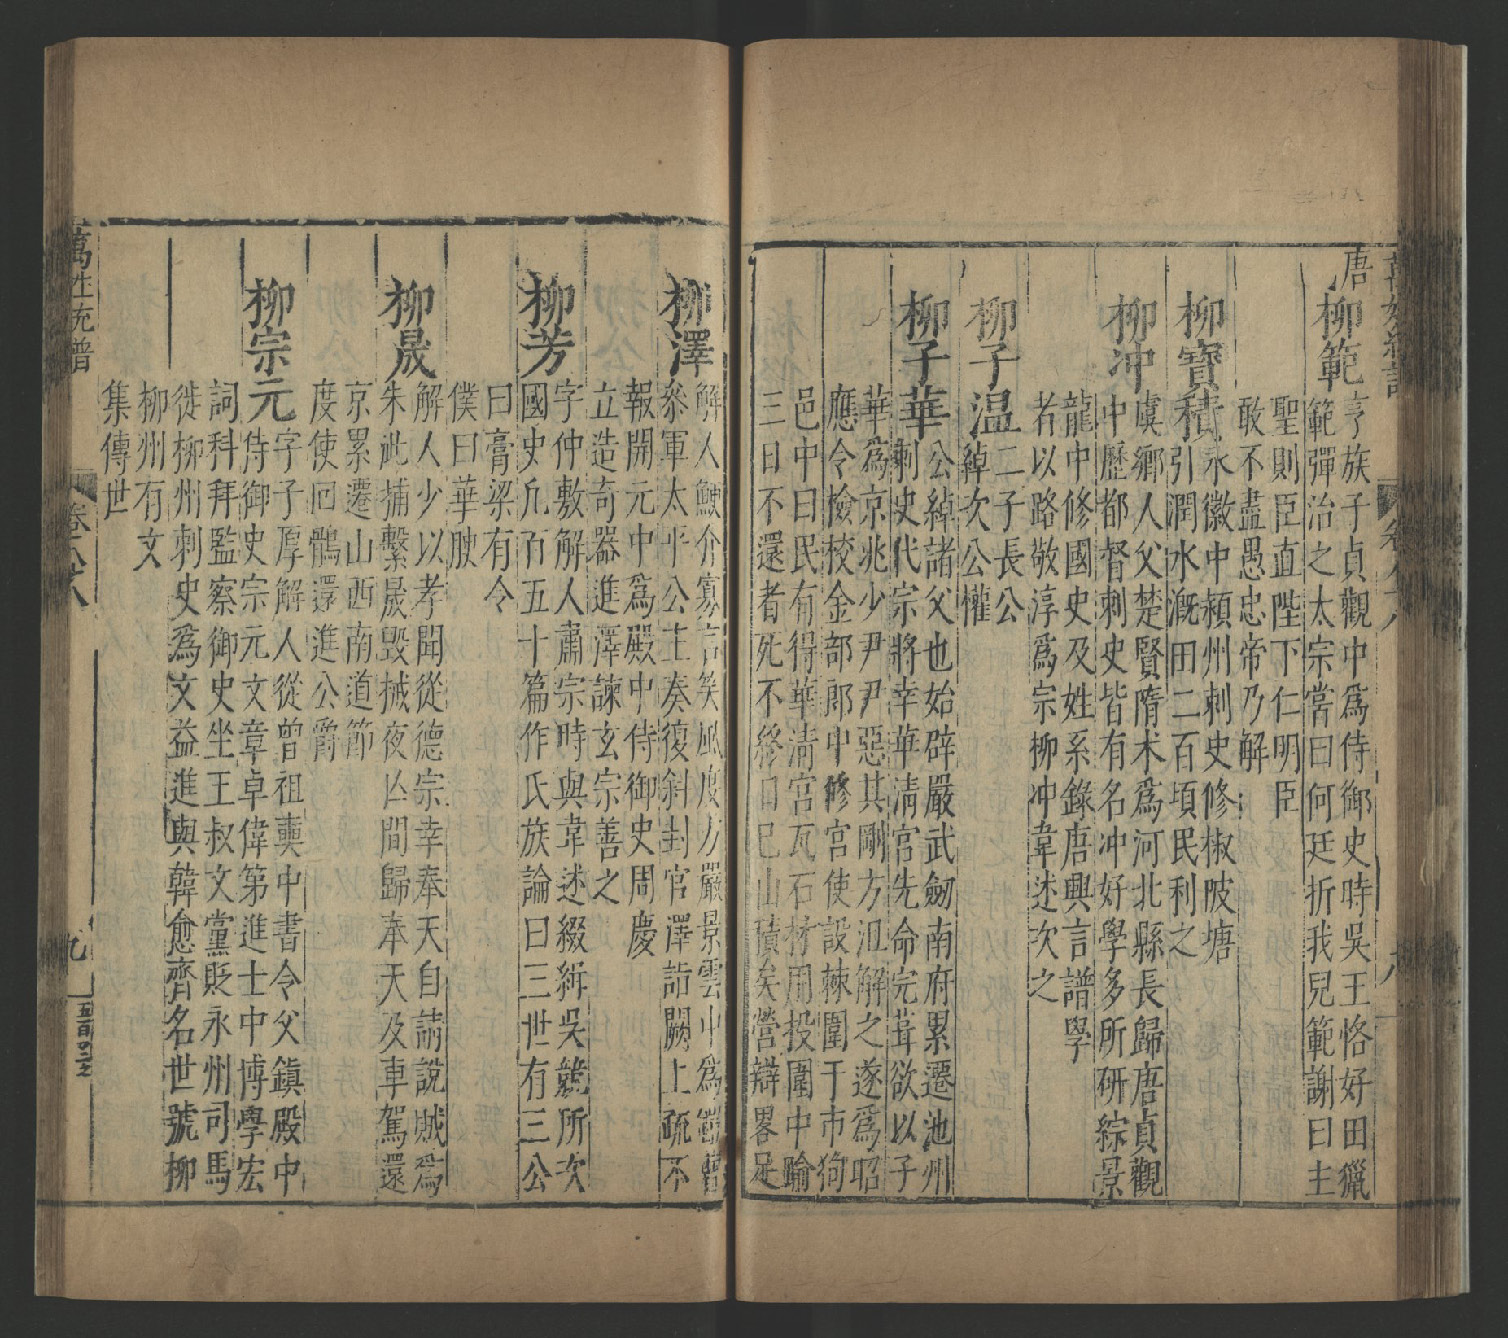 唐
柳範
亨族子貞觀中爲侍御史時吳王恪好田獵
範彈治之太宗嘗曰何廷折我兒範謝曰主
聖則臣直陛下仁明臣
敢不盡愚忠帝乃解
柳寶積
永徽中潁州刺史修椒陂塘
引潤水溉田二百頃民利之
柳冲
虞鄉人父楚賢隋末爲河北縣長歸唐貞觀
中歷都督刺史皆有名冲好學多所研綜景
龍中修國史及姓系錄唐興言譜學
者以路敬淳爲宗柳冲韋述次之
柳子温
二子長公
綽次公權
柳子華
公綽諸父也始辟嚴武劒南府累遷池州
刺史代宗將幸華清宮先命完葺欲以子
華爲京兆少尹尹惡其剛方沮解之遂爲昭
應令檢校金部郎中修宮使設棘圍于市徇
邑中曰民有得華清宮瓦石材用投圍中踰
三日不還者死不終日已山積矣營辦畧足
柳澤
解人鯁介寡言笑風度方嚴景雲中爲
參軍太平公主奏復斜封官澤詣闕上疏不
報開元中爲殿中侍御史周慶
立造奇器進澤諫玄宗善之
柳芳
字仲敷解人肅宗時與韋述綴緝吳兢所次
國史凡百五十篇作氏族論曰三世有三公
曰膏梁有令
僕曰華腴
柳晟
解人少以孝聞從德宗幸奉天自請說賊爲
朱泚捕繫晟毀械夜亡間歸奉天及車駕還
京累遷山西南道節
度使回鶻還進公爵
柳宗元
字子厚解人從曾祖奭中書令父鎮殿中
侍御史宗元文章卓偉第進士中博學宏
詞科拜監察御史坐王叔文黨貶永州司馬
徙柳州刺史爲文益進與韓愈齊名世號柳
柳州有文
集傳世
萬姓統譜
九